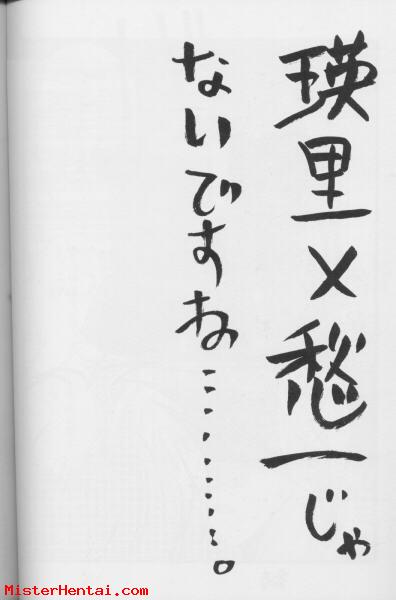 瑛里×愁一じゃ
ないですね………。
MisterHentai.com